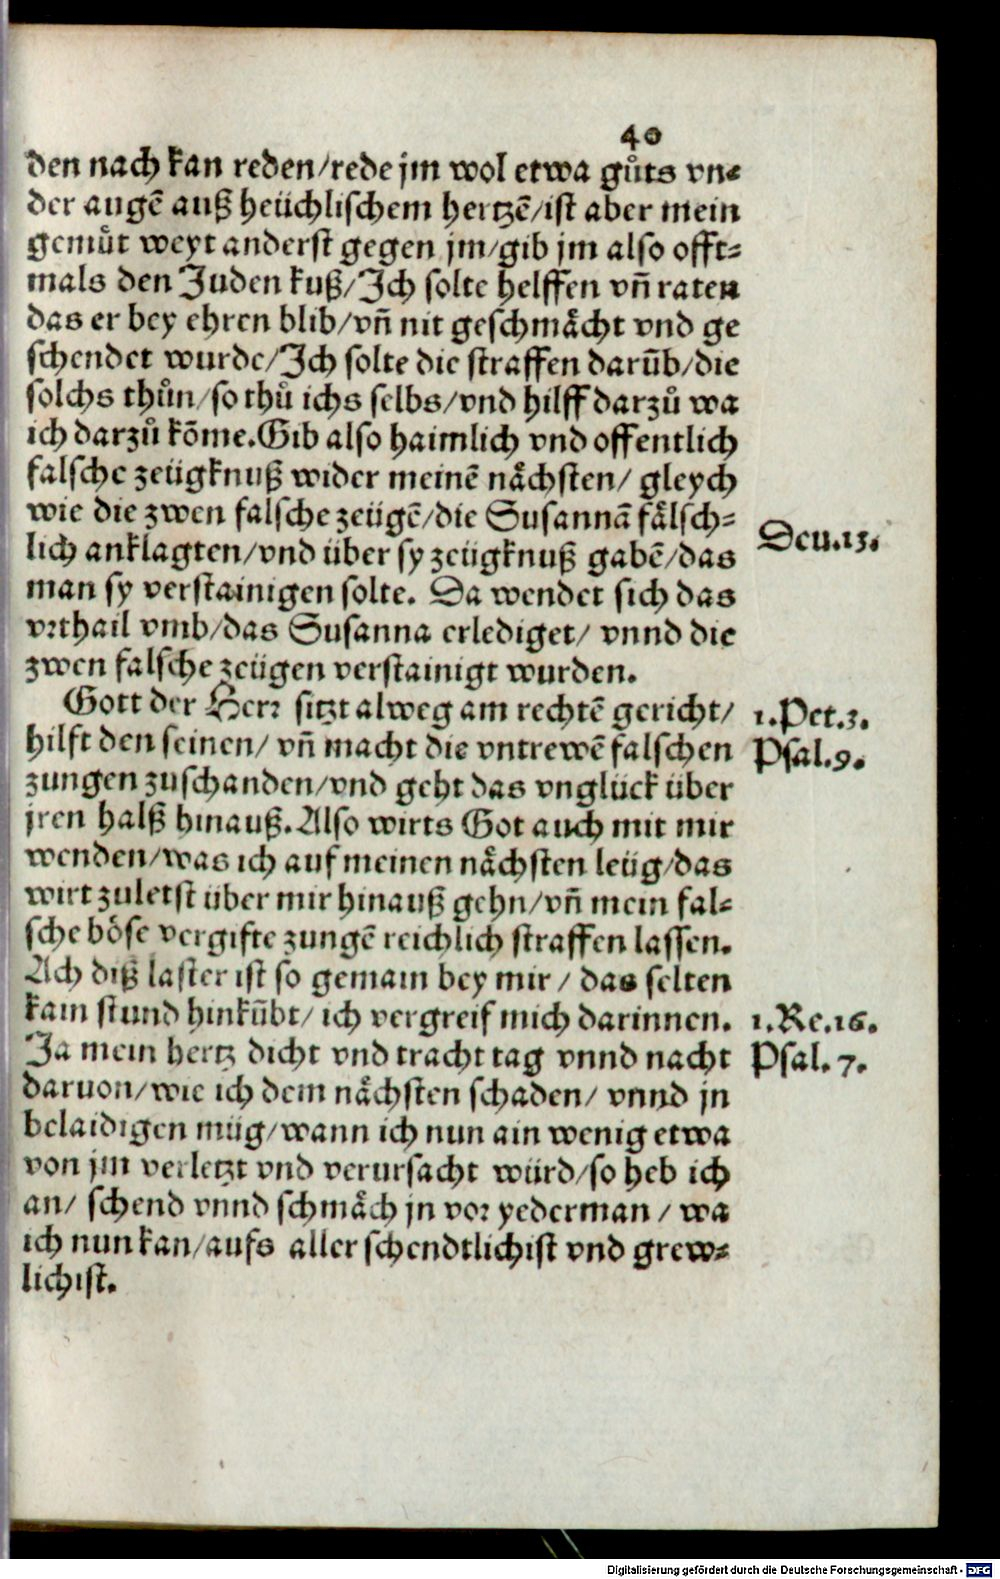 40
den nach kan reden/rede jm wol etwa gůts vn=
der augē auß heüchlischem hertzē/ist aber mein
gemůt weyt anderst gegen jm/gib jm also offt=
mals den Juden kuß/Ich solte helffen vñ raten
das er bey ehren blib/vñ nit geschmåcht vnd ge
schendet wurde/Ich solte die straffen darūb/die
solchs thůn/so thů ichs selbs/vnd hilff darzů wa
ich darzů kōme.Gib also haimlich vnd offentlich
falsche zeügknuß wider meinē nåchsten/ gleych
wie die zwen falsche zeügē/die Susannā fålsch=
lich anklagten/vnd über sy zeügknuß gabē/das
Deu.13.
man sy verstainigen solte. Da wendet sich das
vrthail vmb/das Susanna erlediget/ vnnd die
zwen falsche zeügen verstainigt wurden.
Gott der Herr sitzt alweg am rechtē gericht/
1.Pet.3.
hilft den seinen/ vñ macht die vntrewē falschen
Psal.9.
zungen zuschanden/vnd geht das vnglück über
jren halß hinauß.Also wirts Got auch mit mir
wenden/was ich auf meinen nåchsten leüg/das
wirt zuletst über mir hinauß gehn/vñ mein fal=
sche böse vergifte zungē reichlich straffen lassen.
Ach diß laster ist so gemain bey mir/ das selten
kain stund hinkūbt/ ich vergreif mich darinnen.
1.Re.16.
Ja mein hertz dicht vnd tracht tag vnnd nacht
Psal.7.
daruon/wie ich dem nåchsten schaden/ vnnd jn
belaidigen müg/wann ich nun ain wenig etwa
von jm verletzt vnd verursacht würd/so heb ich
an/ schend vnnd schmåch jn vor yederman/ wa
ich nun kan/aufs aller schendtlichist vnd grew=
lichist.
Digitalisierung gefördert durch die Deutsche Forschungsgemeinschaft - DFG